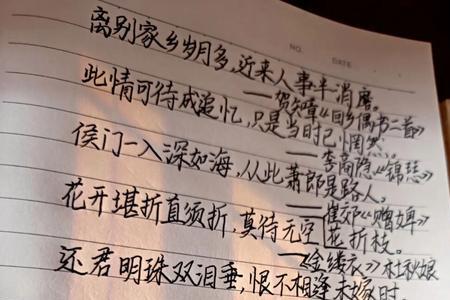 NO.
DATE
离别家乡岁月多,近来人事半消磨。
——贺知章《回乡偶书二首》
此情可待成追忆,只是当时已惘然。
——李商隐《锦瑟》
侯门一入深如海,从此萧郎是路人。
——崔郊《赠婢》
花开堪折直须折,莫待无空花折枝。
——《金缕衣》杜秋娘
还君明珠双泪垂,恨不相逢未嫁时